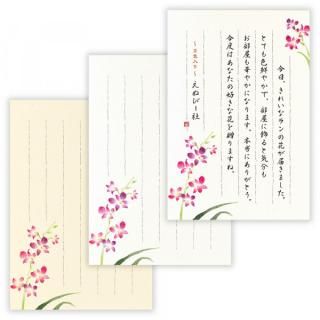 今日、きれいなランの花が届きました。
とても色鮮やかで、部屋に飾ると気分も
お部屋も華やかになります。本当にありがとう。
今度はあなたの好きな花を贈りますね。
えぬびー社